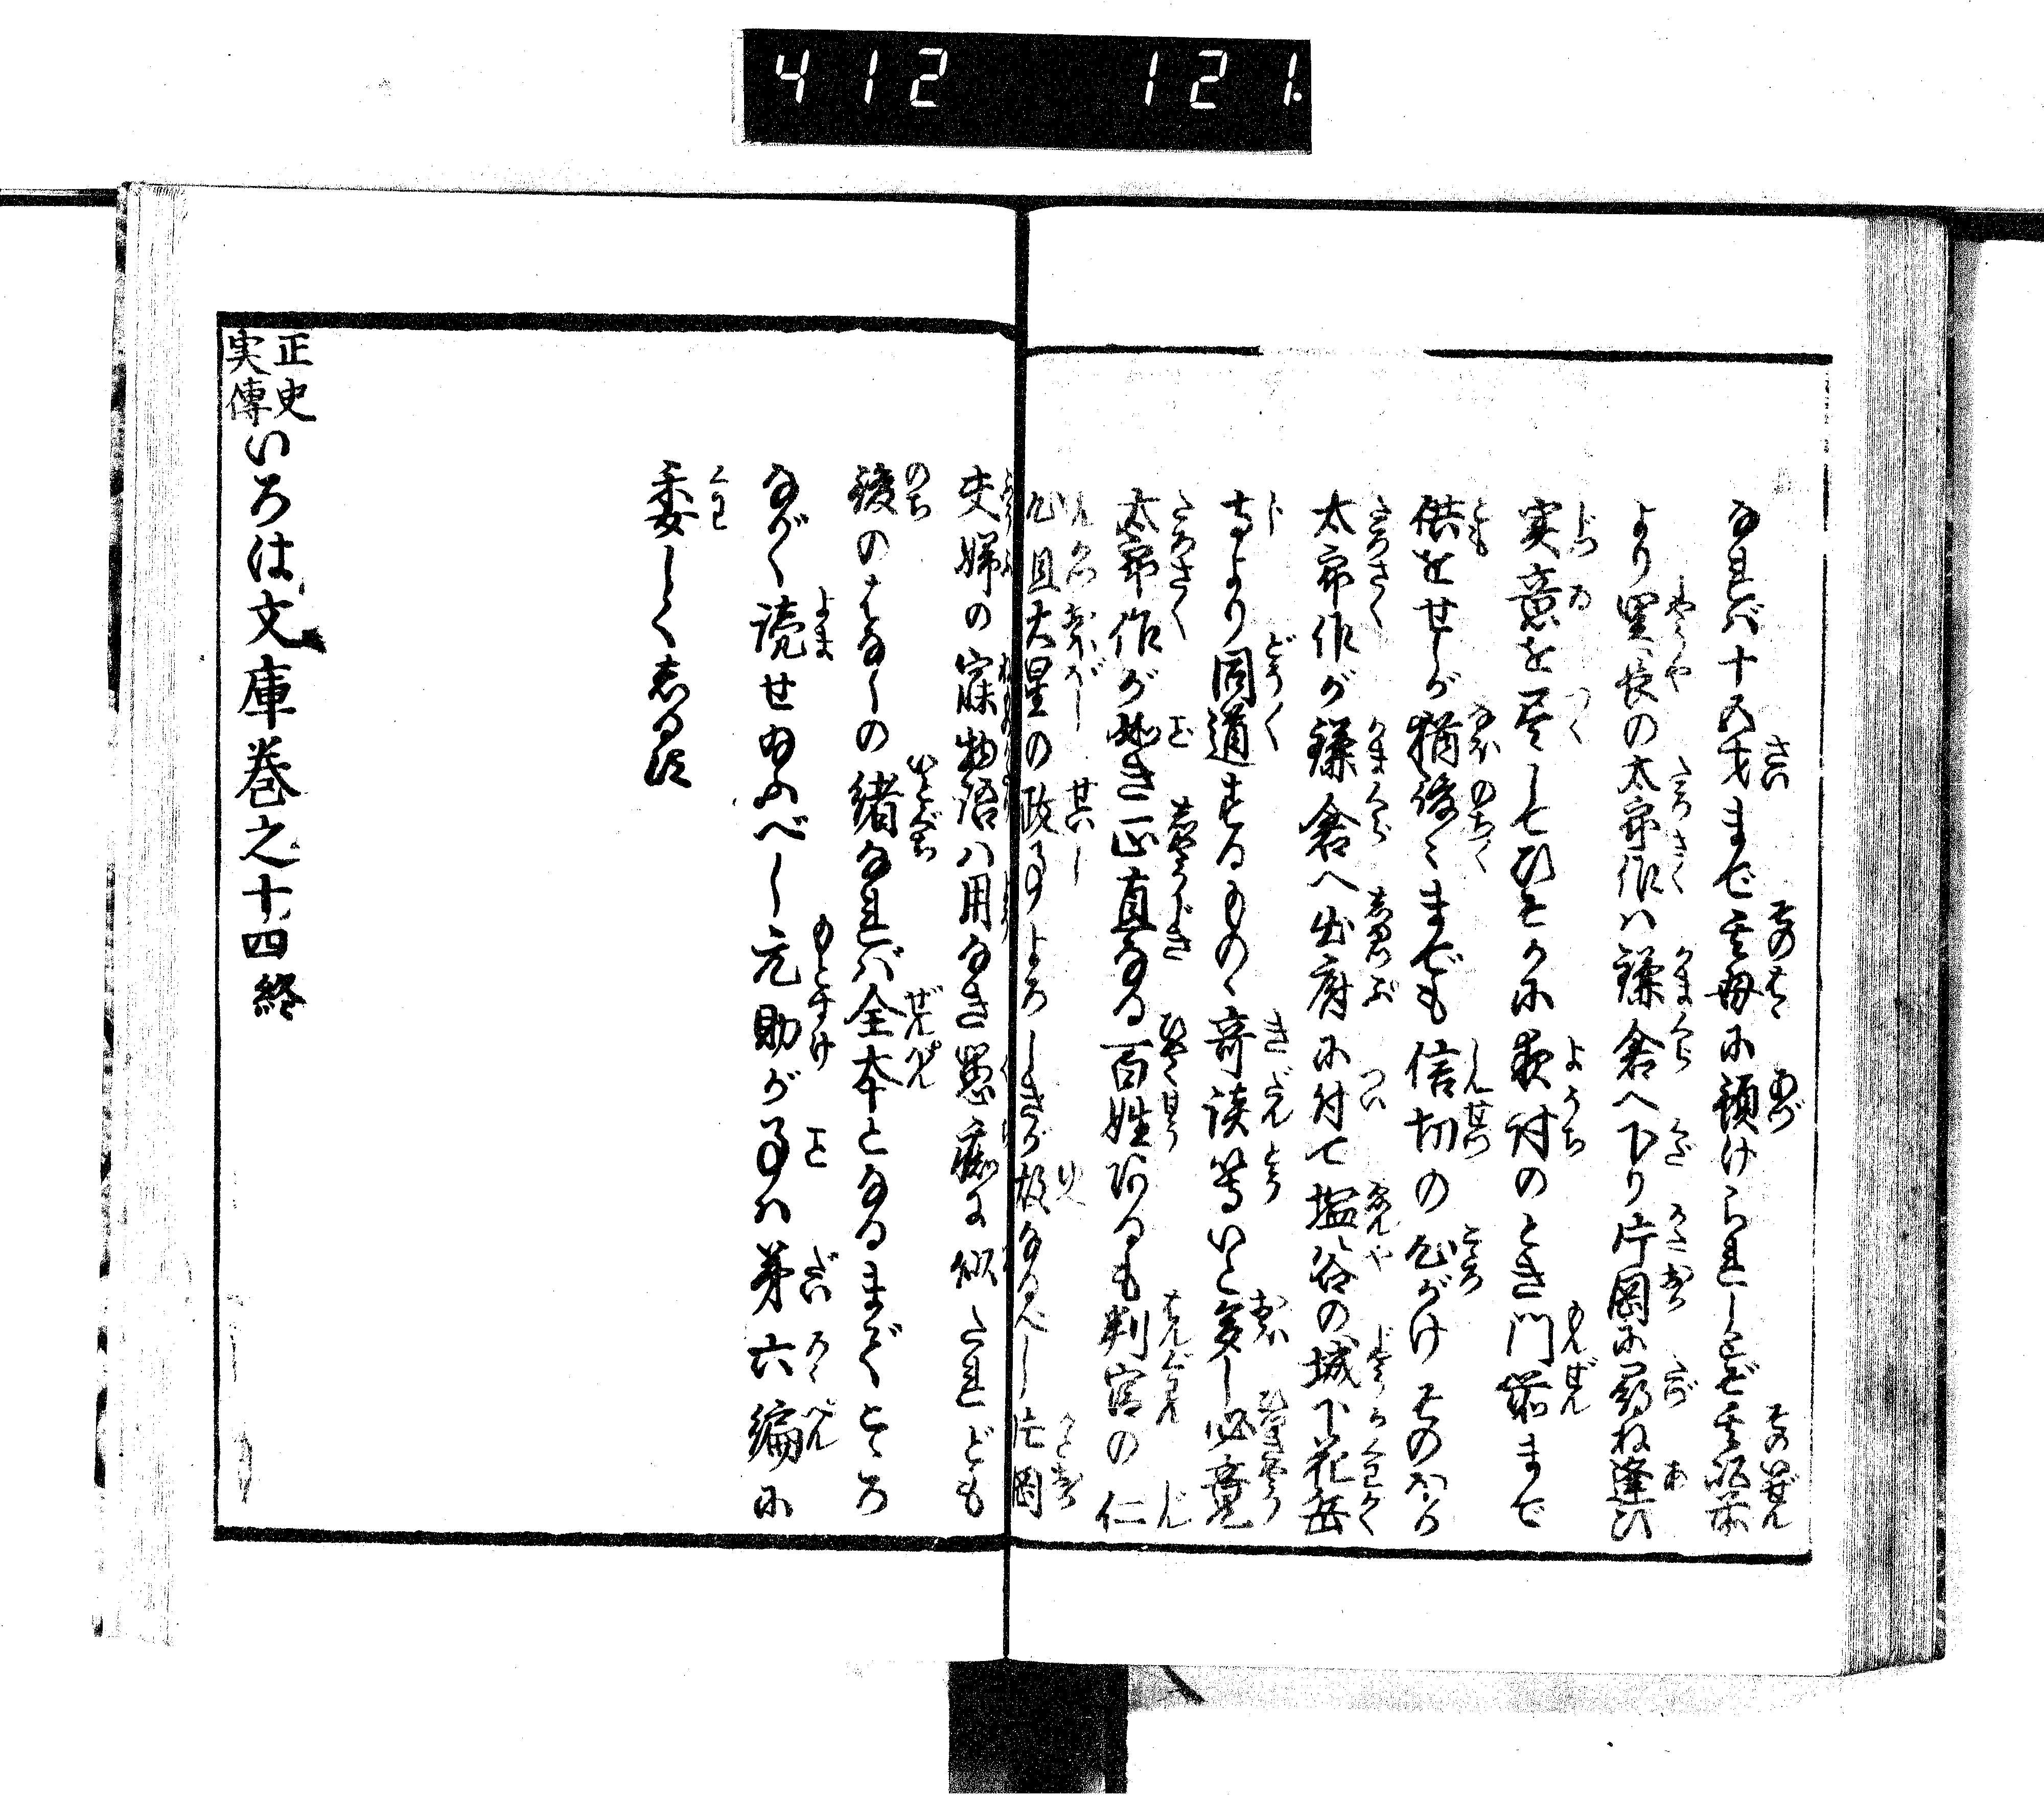 412 121.
なれバ十五才まで其母に預けられしとぞ其砌
より里長の太郎作ハ鎌倉へ下り片岡に尋ね逢ひ
実意を尽してひそかに夜討のとき門前まで
供をせしが猶後々までも信切の心がけそのほか
太郎作が鎌倉へ出府に付て塩谷の城下花岳
寺より同道するものゝ奇談等いと多し必竟
太郎作が如き正直なる百姓あるも判官の仁
心且大星の政事よろしきが故なるべし片岡
夫婦の寐物語ハ用なき愚痴に似たれども
後のはなしの緒なれバ全本となるまでこゝろ
ながく読せ給ふべし元助が事ハ第六編に
委しくしるす
正史実傳いろは文庫巻之十四終